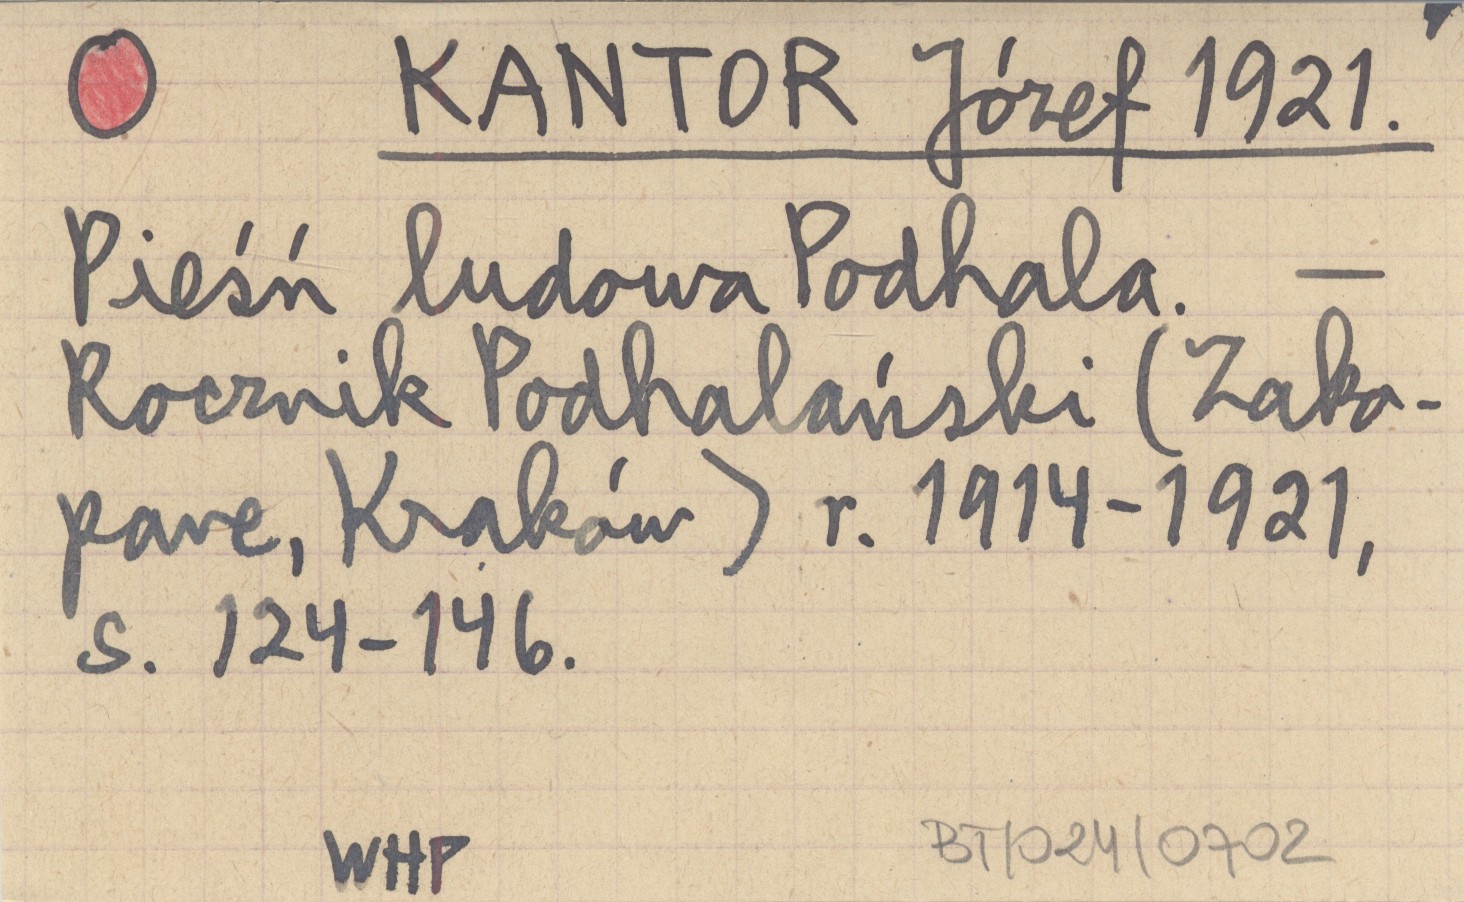 KANTOR Józef 1921.
Pieśń ludowa Podhala. —
Rocznik Podhalański (Zako-
pane, Kraków) r. 1914-1921,
s. 124-146.
WHP
BT/024/0702